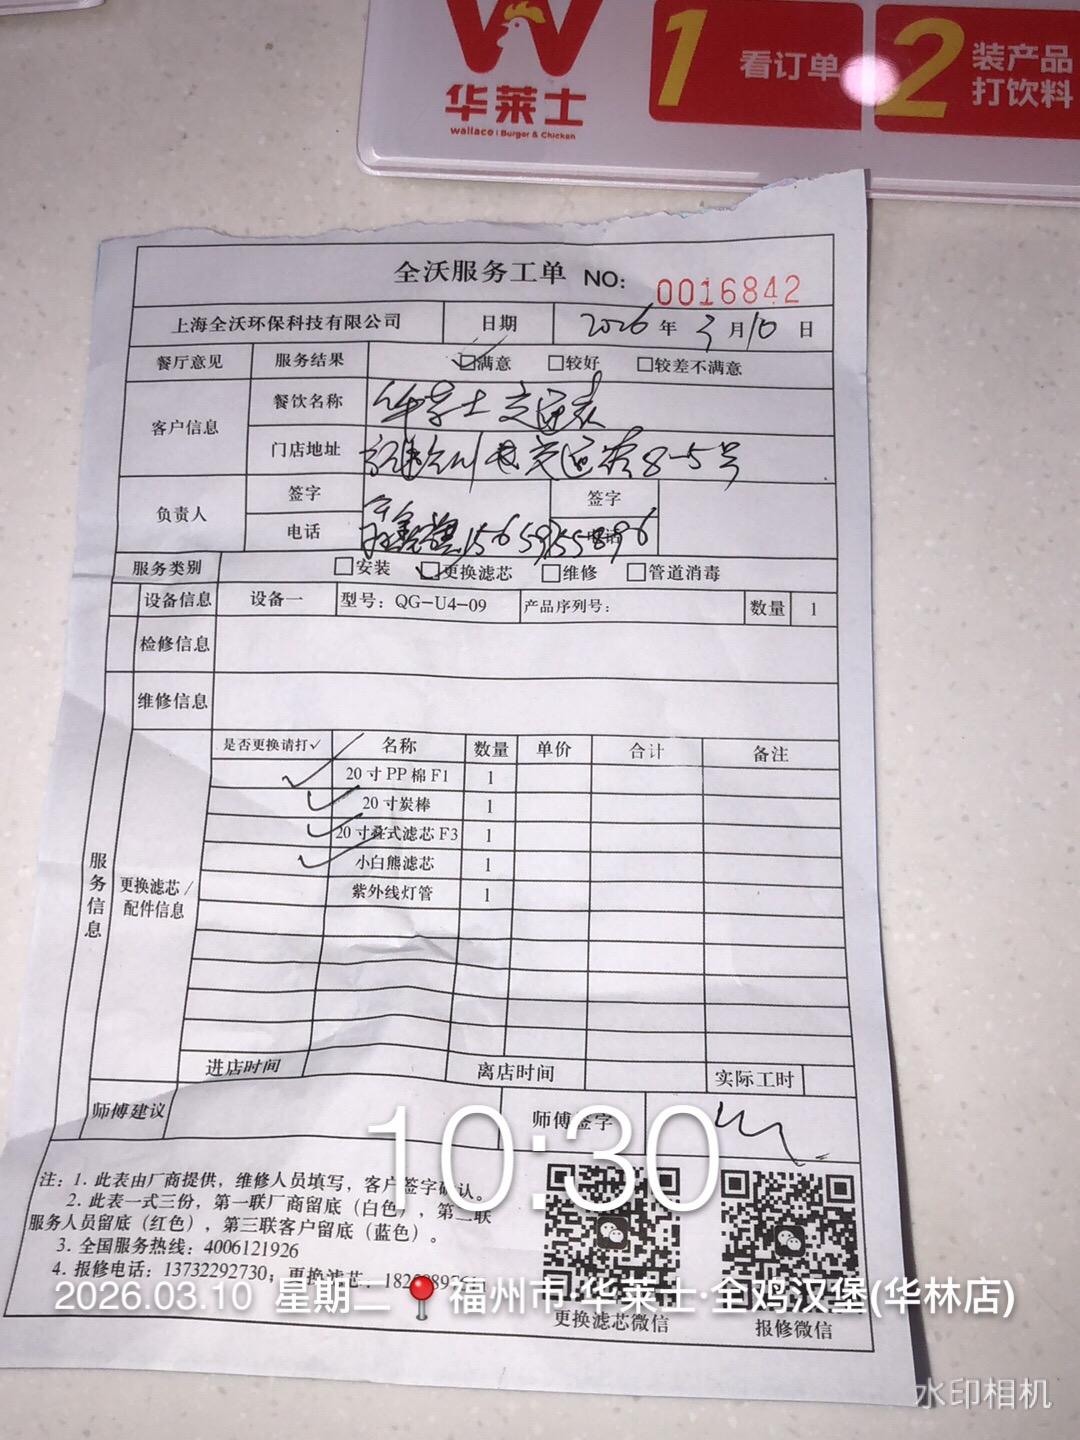 华莱士
wallace | Burger & Chicken
1 看订单
2 装产品
打饮料
全沃服务工单 NO: 0016842
上海全沃环保科技有限公司 日期 2026年3月10日
餐厅意见 服务结果 ☑满意 □较好 □较差不满意
客户信息 餐饮名称 华莱士交通
门店地址 交通 8-5号
负责人 签字 签字
电话
服务类别 □安装 ☑更换滤芯 □维修 □管道消毒
设备信息 设备一 型号：QG-U4-09 产品序列号： 数量 1
检修信息
维修信息
服务信息
更换滤芯/
配件信息
是否更换请打✓ 名称 数量 单价 合计 备注
✓ 20寸PP棉F1 1
✓ 20寸炭棒 1
✓ 20寸叠式滤芯F3 1
✓ 小白熊滤芯 1
紫外线灯管 1
进店时间 离店时间 实际工时
师傅建议 师傅签字
10:30
注：1. 此表由厂商提供，维修人员填写，客户签字确认。
2. 此表一式三份，第一联厂商留底（白色），第二联
服务人员留底（红色），第三联客户留底（蓝色）。
3. 全国服务热线：4006121926
4. 报修电话：13732292730；更换滤芯：
更换滤芯微信 报修微信
2026.03.10 星期二 福州市·华莱士·全鸡汉堡(华林店)
水印相机